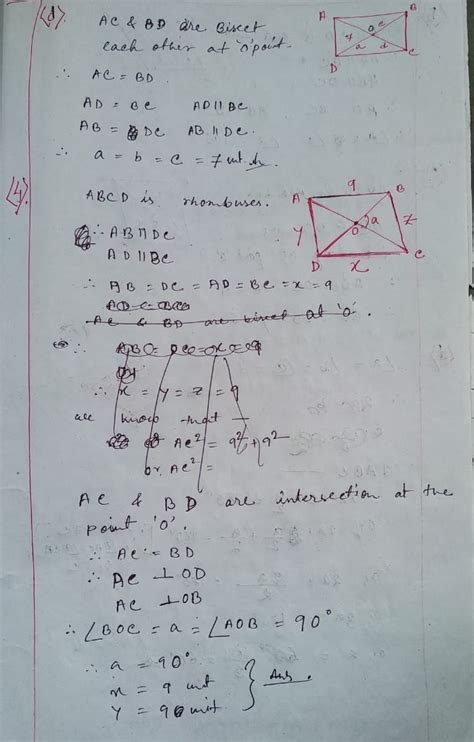 (d) AC & BD are Bisect
each other at 'O' point.
∴ AC = BD
AD = BC AD || BC
AB = DC AB || DC.
∴ a = b = c = 7 unit Ans
A B O 7 c a d D C
(4) ABCD is rhombuses.
∴ AB || DC
AD || BC
∴ AB = DC = AD = BC = x = 9
AC & BD are bisect at 'O'.
∴ x = y = z = 9
we know that –
AC² = 9² + 9²
or, AC² =
A 9 B y O a z D x C
AC & BD are intersection at the
point 'O'.
∴ AC = BD
∴ AC ⊥ OD
AC ⊥ OB
∴ ∠BOC = a = ∠AOB = 90°
∴ a = 90°
x = 9 unit
y = 9 unit
Ans.